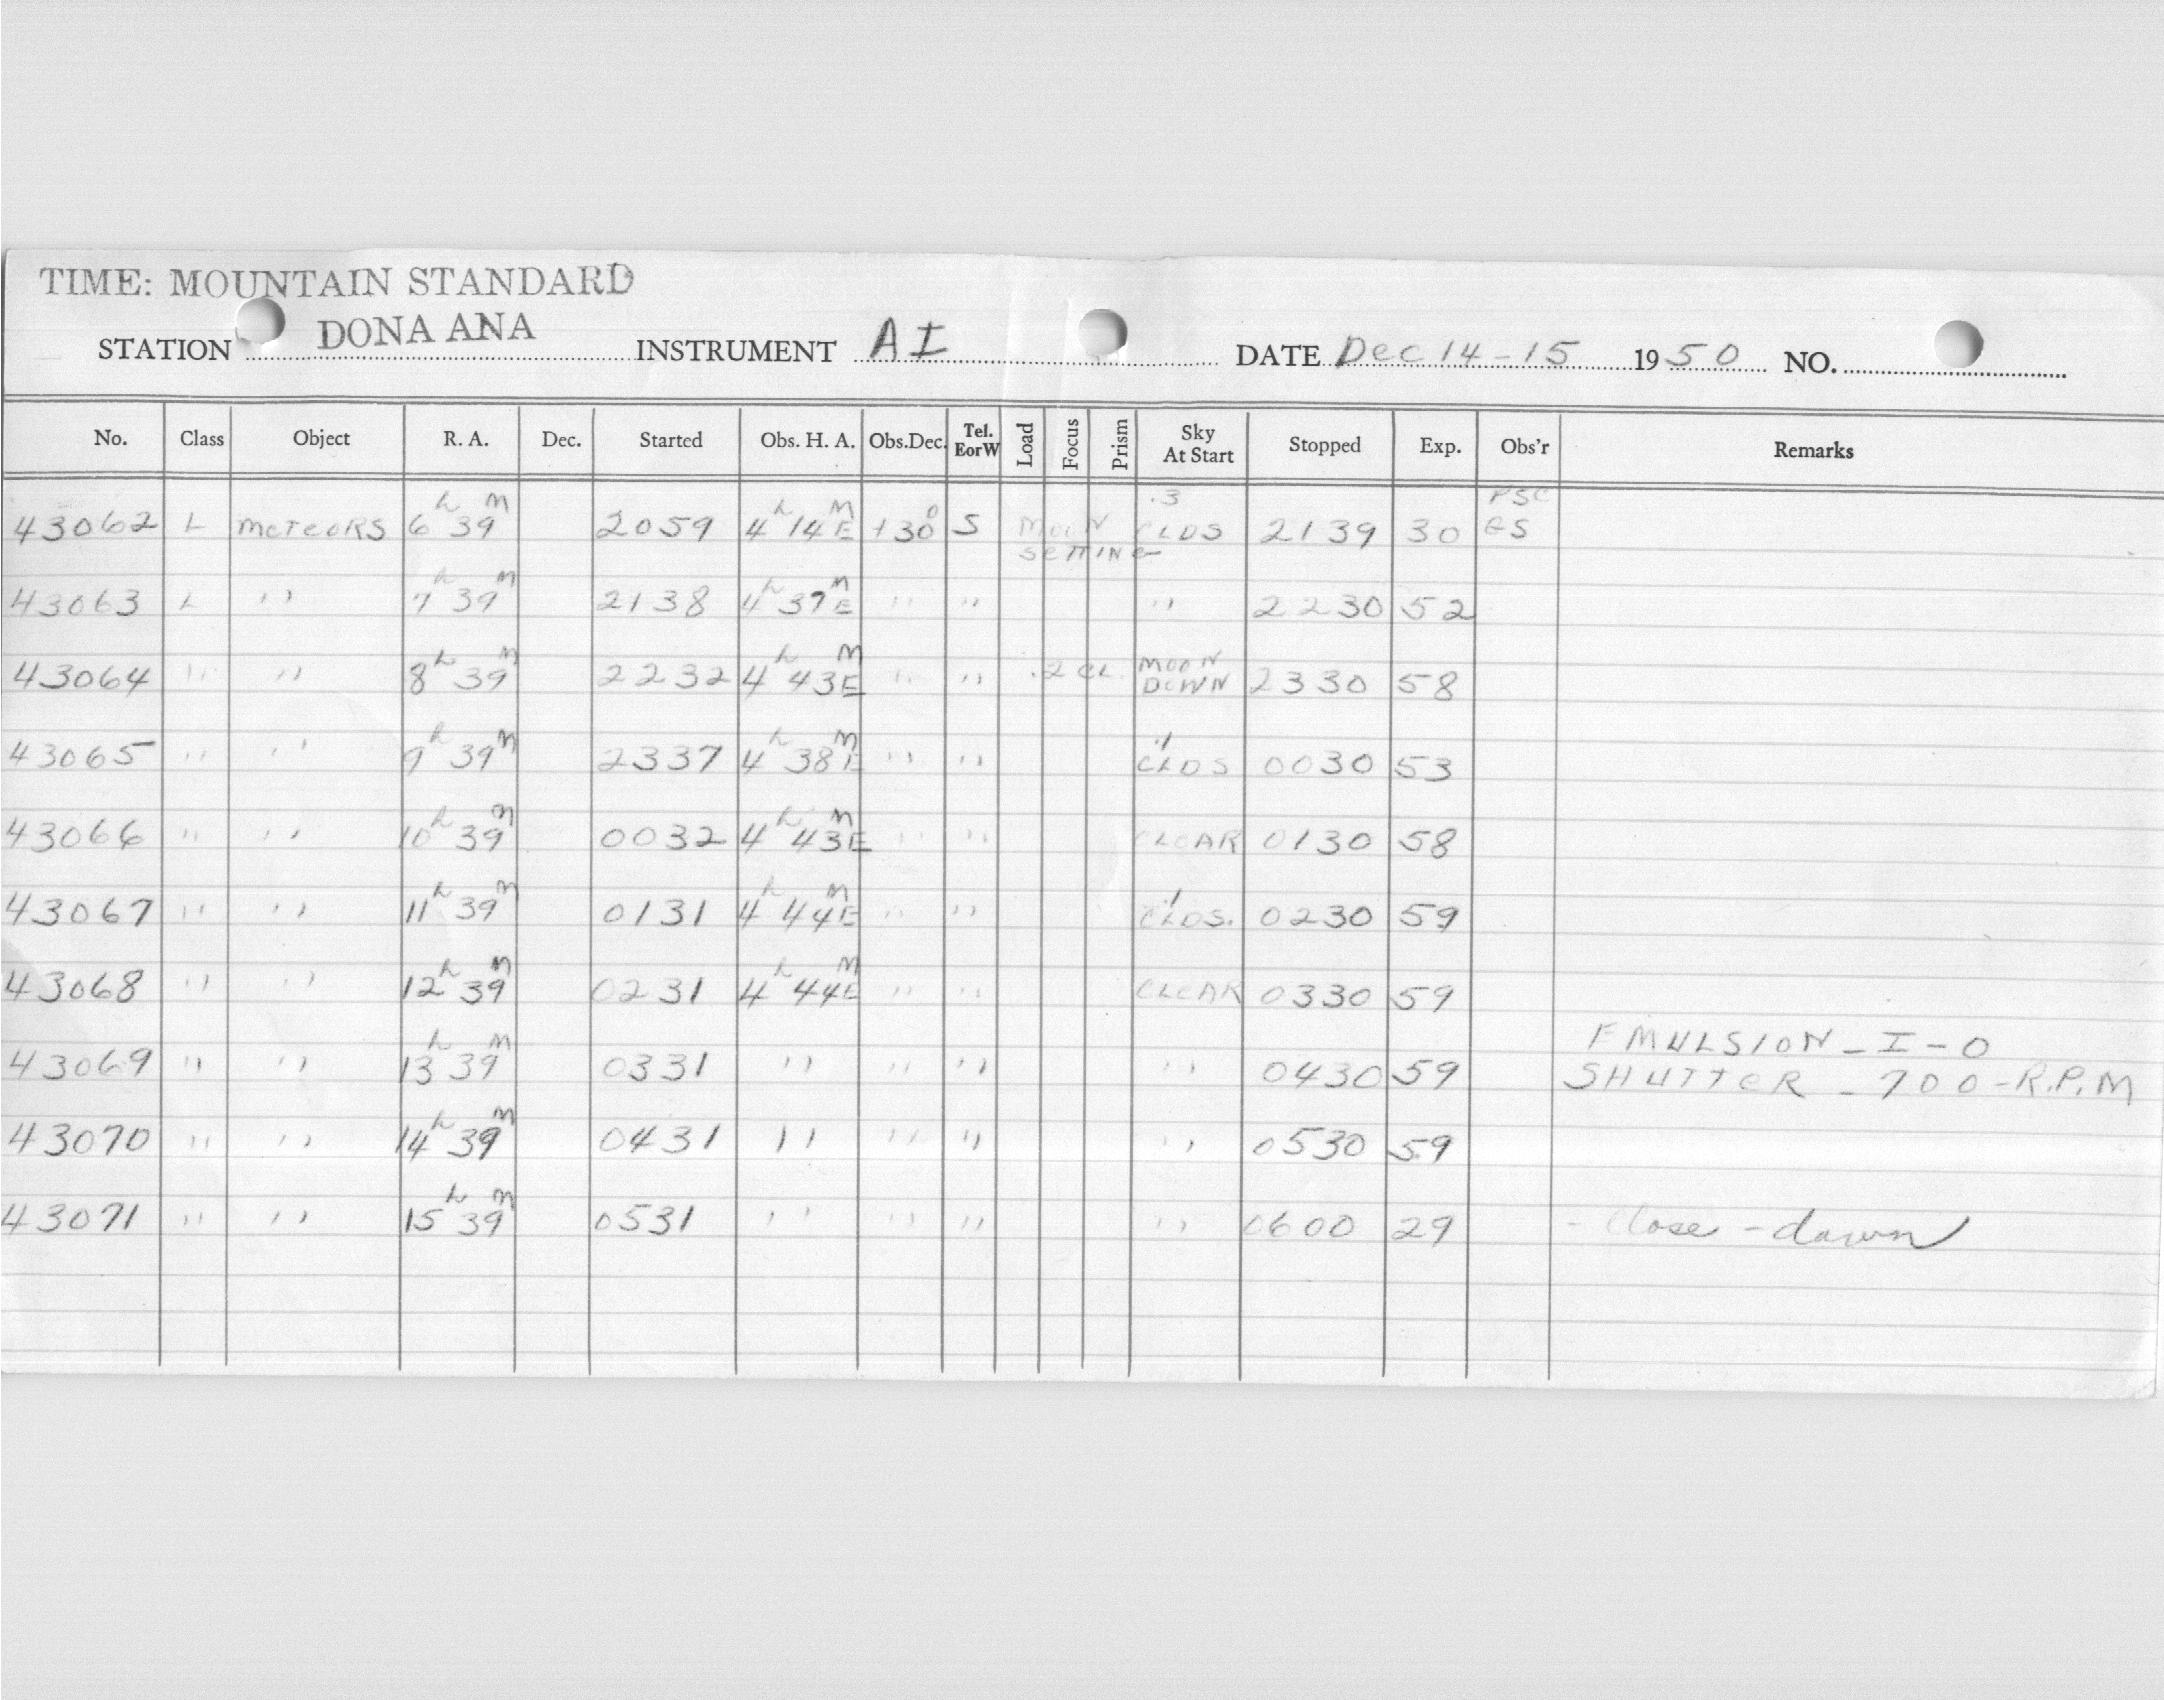 TIME: MOUNTAIN STANDARD
STATION DONA ANA INSTRUMENT AI DATE Dec 14-15 1950 NO.
No. Class Object R. A. Dec. Started Obs. H. A. Obs.Dec. Tel. EorW Load Focus Prism Sky At Start Stopped Exp. Obs'r Remarks
43062 L METEORS 6h 39M 2059 4h 14M E +30° S MOON SETTING .3 CLDS 2139 30 PSC GS
43063 L '' 7h 39M 2138 4h 37M E '' '' '' 2230 52
43064 '' '' 8h 39M 2232 4h 43M E '' '' .2 CL. MOON DOWN 2330 58
43065 '' '' 9h 39M 2337 4h 38M E '' '' .1 CLDS 0030 53
43066 '' '' 10h 39M 0032 4h 43M E '' '' CLEAR 0130 58
43067 '' '' 11h 39M 0131 4h 44M E '' '' .1 CLDS. 0230 59
43068 '' '' 12h 39M 0231 4h 44M E '' '' CLEAR 0330 59
43069 '' '' 13h 39M 0331 '' '' '' '' 0430 59 EMULSION - I - O
SHUTTER - 700 - R.P.M
43070 '' '' 14h 39M 0431 '' '' '' '' 0530 59
43071 '' '' 15h 39M 0531 '' '' '' '' 0600 29 - Close - dawn